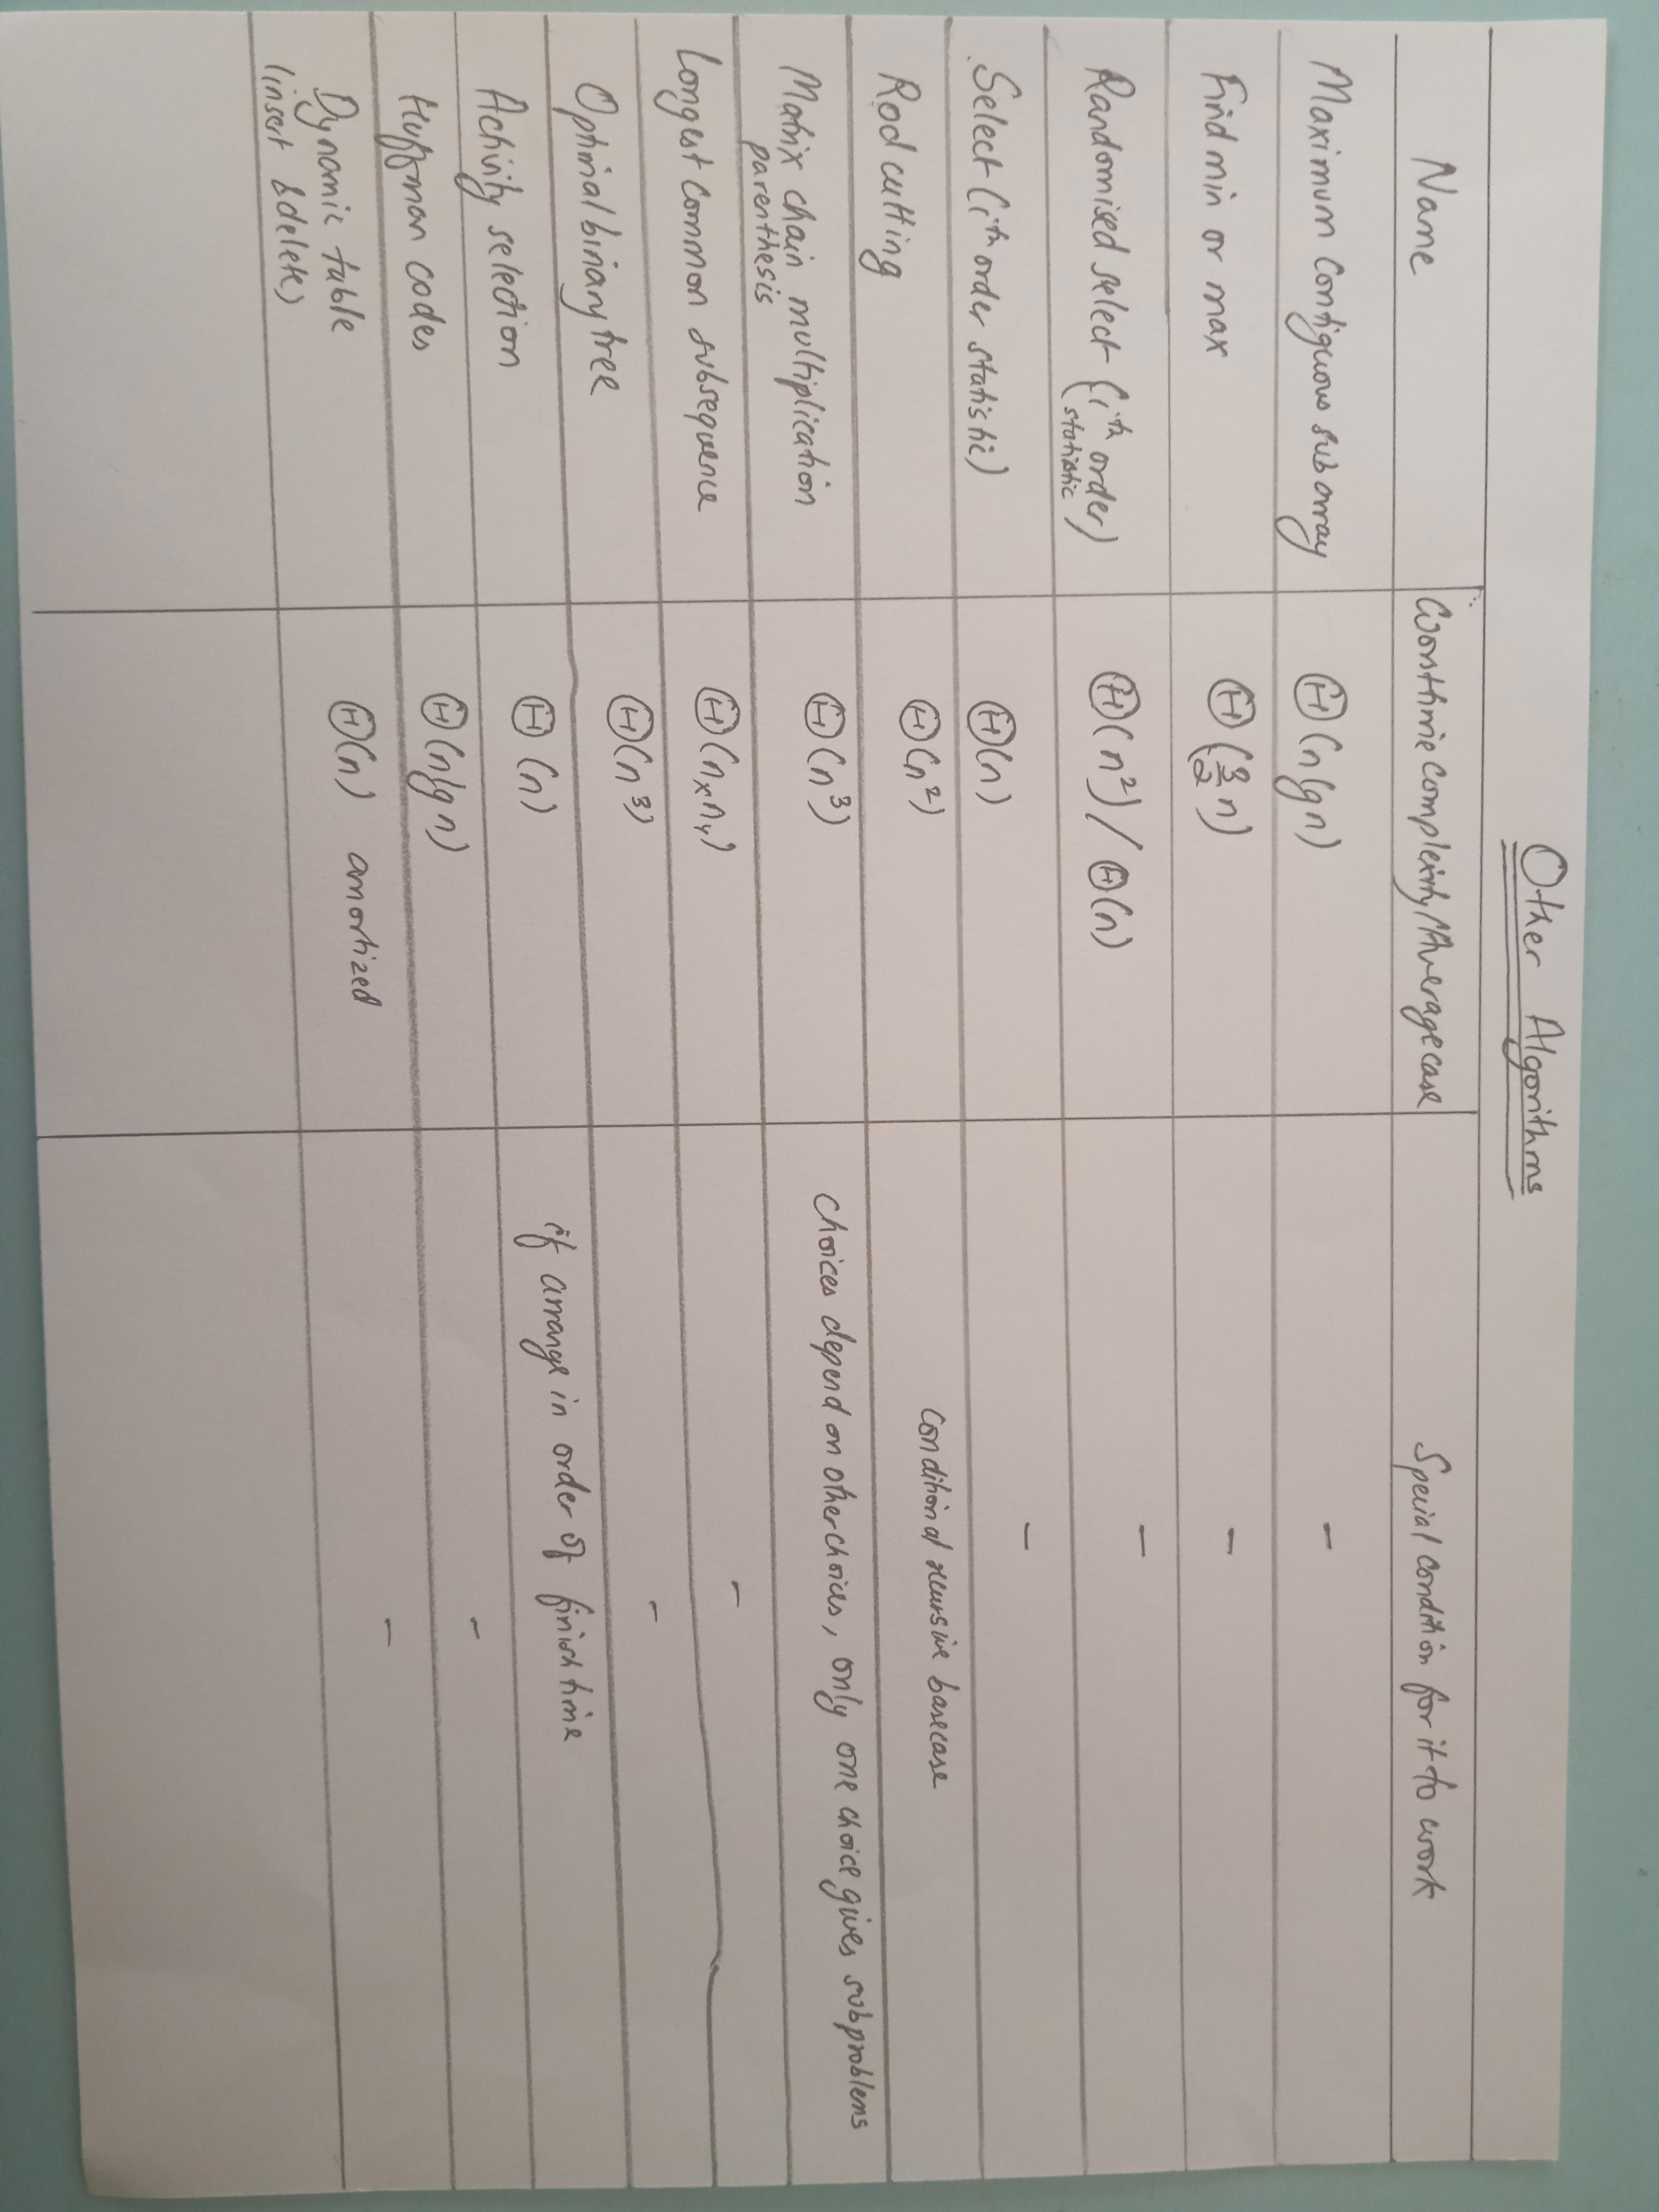 Other Algorithms
Name Worsttime complexity/Average case Special condition for it to work
Maximum Contiguous subarray Θ(nlgn) -
Find min or max Θ(3/2 n) -
Randomised select (iᵗʰ order statistic) Θ(n²) / Θ(n) -
Select (iᵗʰ order statistic) Θ(n) -
Rod cutting Θ(n²) Conditional recursive basecase
Matrix chain multiplication parenthesis Θ(n³) Choices depend on other choices, only one choice gives subproblems
Longest Common subsequence Θ(nₓnᵧ) -
Optimal binary tree Θ(n³) -
Activity selection Θ(n) if arrange in order of finish time
Huffman codes Θ(nlgn) -
Dynamic table (insert & delete) Θ(n) amortized -